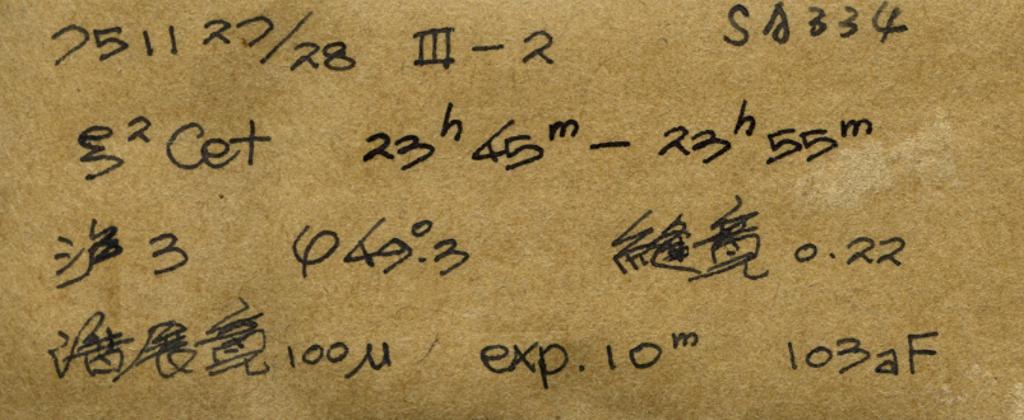 751127/28 Ⅲ-2 SA334
ξ² Cet 23ʰ45ᵐ - 23ʰ55ᵐ
3 φ49°.3 縫寬 0.22
展寬 100μ exp. 10ᵐ 103aF